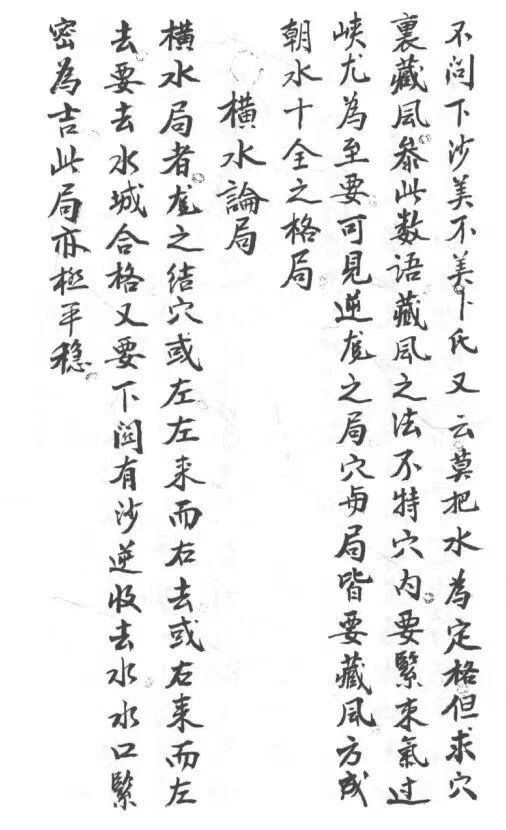 不问下沙美不美卜氏又云莫把水為定格但求穴
裏藏風参此数语藏風之法不特穴内要緊束氣过
峡尤為至要可見逆龙之局穴与局皆要藏風方成
朝水十全之格局
橫水論局
橫水局者龙之结穴或左左来而右去或右来而左
去要去水城合格又要下関有沙逆收去水水口緊
密為吉此局亦極平穏